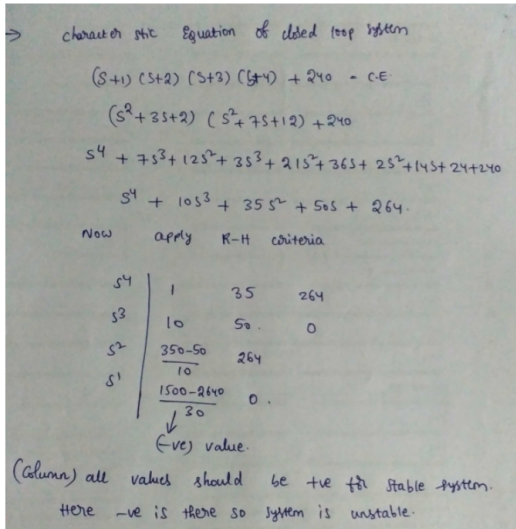 → character stic Equation of closed loop system
(S+1) (S+2) (S+3) (S+4) + 240 - C.E.
(S² + 3S+2) (S² + 7S+12) + 240
S⁴ + 7S³ + 12S² + 3S³ + 21S² + 36S + 2S² + 14S + 24 + 240
S⁴ + 10S³ + 35S² + 50S + 264.
Now apply R-H criteria
S⁴ | 1 35 264
S³ | 10 50. 0
S² | (350-50)/10 264
S¹ | (1500-2640)/30 0.
↓
(-ve) value.
(Column) all values should be +ve for stable system.
Here -ve is there so system is unstable.